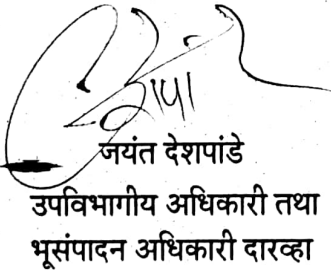 जयंत देशपांडे
उपविभागीय अधिकारी तथा
भूसंपादन अधिकारी दारव्हा